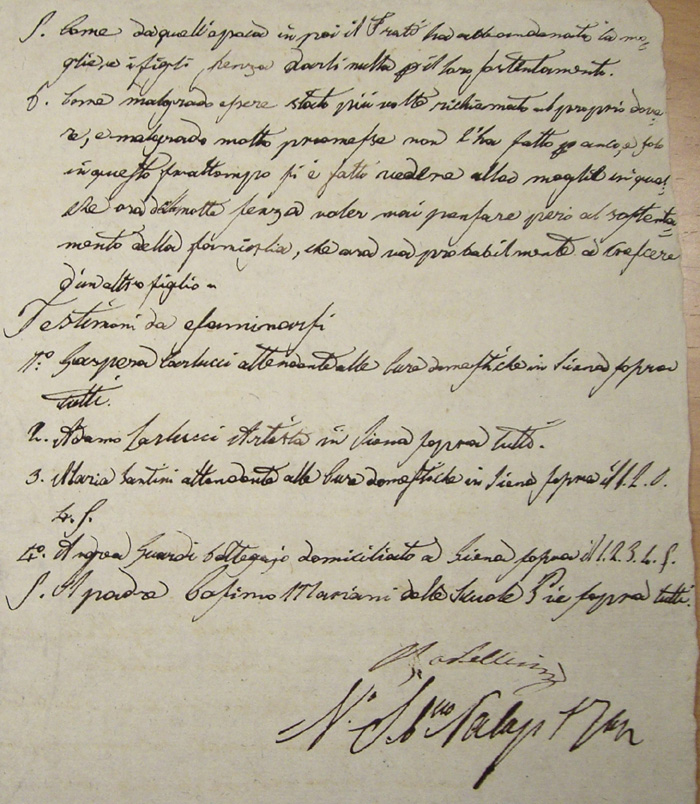 5. Come da quell'epoca in poi il Frati ha abbandonato la mo=
glie, e i figli, senza darli nulla p il loro sostentamento.
6. Come malgrado essere stato più volte richiamato al proprio dove=
re, e malgrado molte promesse non l'ha fatto p anco, e solo
in questo frattempo si è fatto vedere alla moglie in qual=
che ora della notte senza voler mai pensare però al sostenta=
mento della famiglia, che ora va probabilmente a crescere
d'un altro figlio =
Testimoni da esaminarsi
1.º Gaspera Carlucci attendente alle Cure domestiche in Siena sopra
tutti.
2. Adamo Carlucci Artista in Siena sopra tutti.
3. Maria Santini attendente alle Cure domestiche in Siena sopra il 1. 2. 3.
4. 5.
4.º Andrea Guardi bottegajo domiciliato a Siena sopra il 1. 2. 3. 4. 5.
5. Il padre Cosimo Mariani delle Scuole Pie sopra tutti.